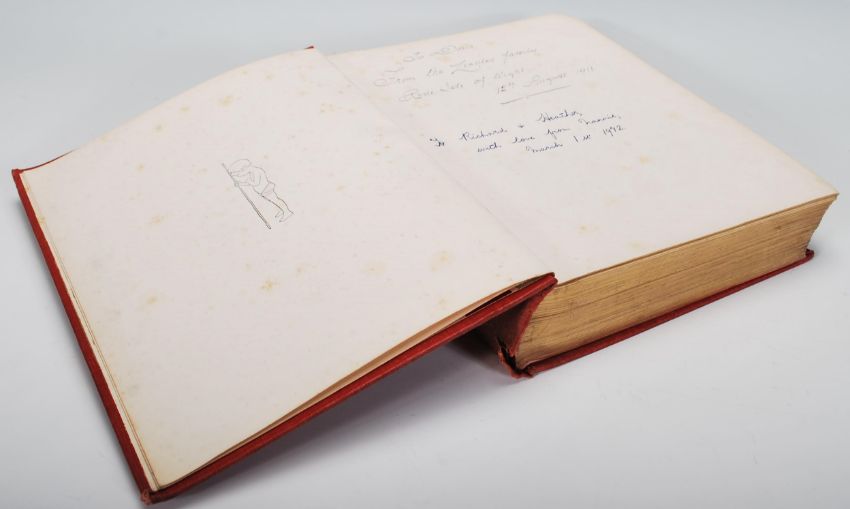 From the
Isle of
12th August 1911
To Richard & Heather,
with love from Nannie,
March 1st 1972